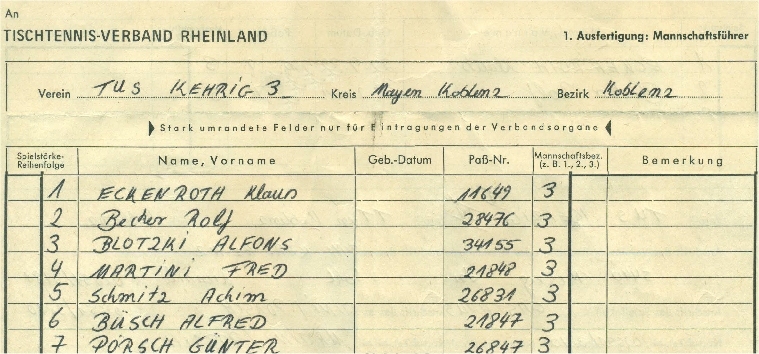 An
TISCHTENNIS-VERBAND RHEINLAND 1. Ausfertigung: Mannschaftsführer
Verein TUS KEHRIG 3 Kreis Mayen Koblenz Bezirk Koblenz
Stark umrandete Felder nur für Eintragungen der Verbandsorgane
Spielstärke-Reihenfolge Name, Vorname Geb.-Datum Paß-Nr. Mannschaftsbez. (z. B. 1., 2., 3.) Bemerkung
1 ECKENROTH Klaus 11649 3
2 Becker Rolf 28476 3
3 BLOTZKI ALFONS 34155 3
4 MARTINI FRED 21848 3
5 Schmitz Achim 26831 3
6 BÜSCH ALFRED 21847 3
7 PORSCH GÜNTER 26847 3